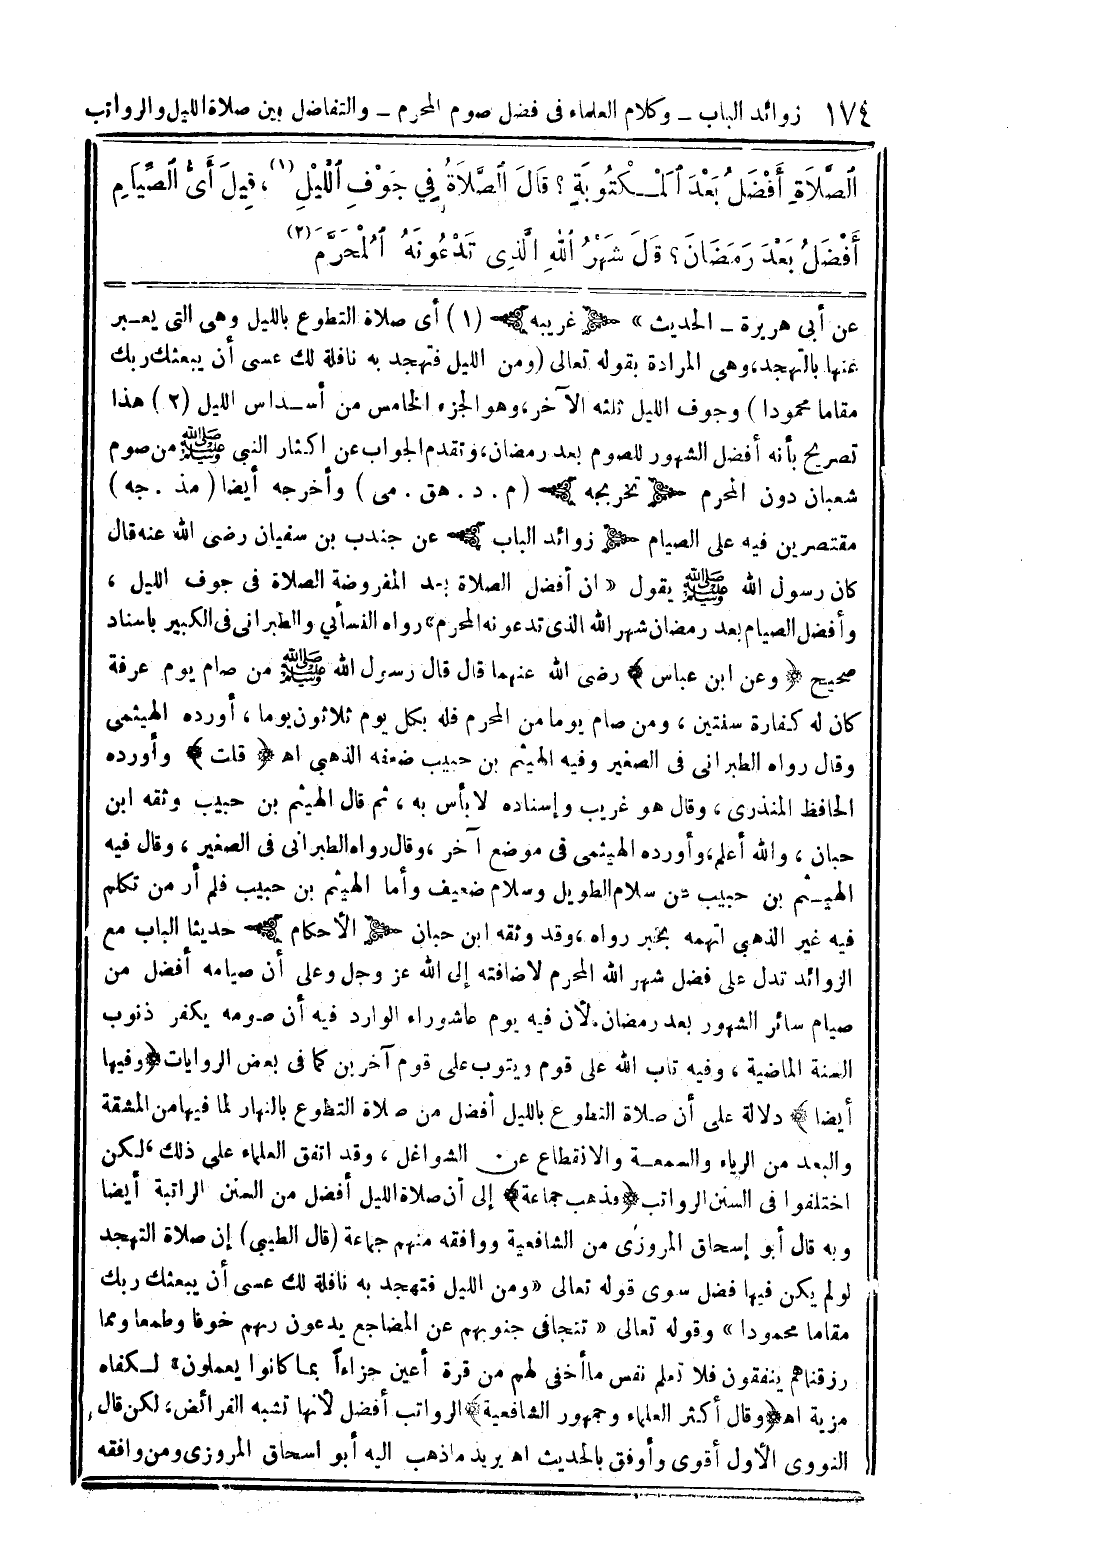 ١٧٤ زوائد الباب ـ وكلام العلماء فى فضل صوم المحرم ـ والتفاضل بين صلاة الليل والرواتب
ٱلصَّلَاةِ أَفْضَلُ بَعْدَ ٱلْمَكْتُوبَةِ ؟ قَالَ ٱلصَّلَاةُ فِي جَوْفِ ٱللَّيْلِ (١)، قِيلَ أَىُّ ٱلصِّيَامِ
أَفْضَلُ بَعْدَ رَمَضَانَ؟ قَلَ شَهْرُ ٱللهِ الَّذِى تَدْعُونَهُ ٱلْمُحَرَّمَ (٢)
عن أبى هريرة ـ الحديث » ﴿ غريبه ﴾ (١) أى صلاة التطوع بالليل وهى التى يعبر
عنها بالتهجد، وهى المرادة بقوله تعالى (ومن الليل فتهجد به نافلة لك عسى أن يبعثك ربك
مقاما محمودا ) وجوف الليل ثلثه الآخر، وهو الجزء الخامس من أسداس الليل (٢) هذا
تصريح بأنه أفضل الشهور للصوم بعد رمضان، وتقدم الجواب عن اكثار النبى ﷺ من صوم
شعبان دون المحرم ﴿ تخريجه ﴾ (م . د . هق . مى ) وأخرجه أيضا ( مذ . جه )
مقتصرين فيه على الصيام ﴿ زوائد الباب ﴾ عن جندب بن سفيان رضى الله عنه قال
كان رسول الله ﷺ يقول « ان أفضل الصلاة بعد المفروضة الصلاة فى جوف الليل ،
وأفضل الصيام بعد رمضان شهر الله الذى تدعونه المحرم» رواه النسأبي والطبرانى فى الكبير باسناد
صحيح ﴿ وعن ابن عباس ﴾ رضى الله عنهما قال قال رسول الله ﷺ من صام يوم عرفة
كان له كفارة سنتين ، ومن صام يوما من المحرم فله بكل يوم ثلاثون يوما ، أورده الهيثمى
وقال رواه الطبرانى فى الصغير وفيه الهيثم بن حبيب ضعفه الذهبى اه ﴿ قلت ﴾ وأورده
الحافظ المنذرى ، وقال هو غريب وإسناده لا بأس به ، ثم قال الهيثم بن حبيب وثقه ابن
حبان ، والله أعلم، وأورده الهيثمى فى موضع آخر ، وقال رواه الطبرانى فى الصغير ، وقال فيه
الهيثم بن حبيب عن سلام الطويل وسلام ضعيف وأما الهيثم بن حبيب فلم أر من تكلم
فيه غير الذهبى اتهمه بخبر رواه ، وقد وثقه ابن حبان ﴿ الأحكام ﴾ حديثا الباب مع
الزوائد تدل على فضل شهر الله المحرم لاضافته إلى الله عز وجل وعلى أن صيامه أفضل من
صيام سائر الشهور بعد رمضان. لأن فيه يوم عاشوراء الوارد فيه أن صومه يكفر ذنوب
السنة الماضية ، وفيه تاب الله على قوم ويتوب على قوم آخرين كما فى بعض الروايات ﴿وفيها
أيضا ﴾ دلالة على أن صلاة التطوع بالليل أفضل من صلاة التطوع بالنهار لما فيها من المشقة
والبعد من الرياء والسمعة والانقطاع عن الشواغل ، وقد اتفق العلماء على ذلك ، لكن
اختلفوا فى السنن الرواتب ﴿فذهب جماعة﴾ إلى أن صلاة الليل أفضل من السنن الراتبة أيضا
وبه قال أبو إسحاق المروزى من الشافعية ووافقه منهم جماعة (قال الطيبى) إن صلاة التهجد
لو لم يكن فيها فضل سوى قوله تعالى «ومن الليل فتهجد به نافلة لك عسى أن يبعثك ربك
مقاما محمودا » وقوله تعالى « تتجافى جنوبهم عن المضاجع يدعون ربهم خوفا وطمعا ومما
رزقناهم ينفقون فلا تعلم نفس ما أخفى لهم من قرة أعين جزاءاً بما كانوا يعملون» لكفاه
مزية اه ﴿وقال أكثر العلماء وجمهور الشافعية﴾ الرواتب أفضل لأنها تشبه الفرائض، لكن قال
النووى الأول أقوى وأوفق بالحديث اه يريد ماذهب اليه أبو اسحاق المروزى ومن وافقه